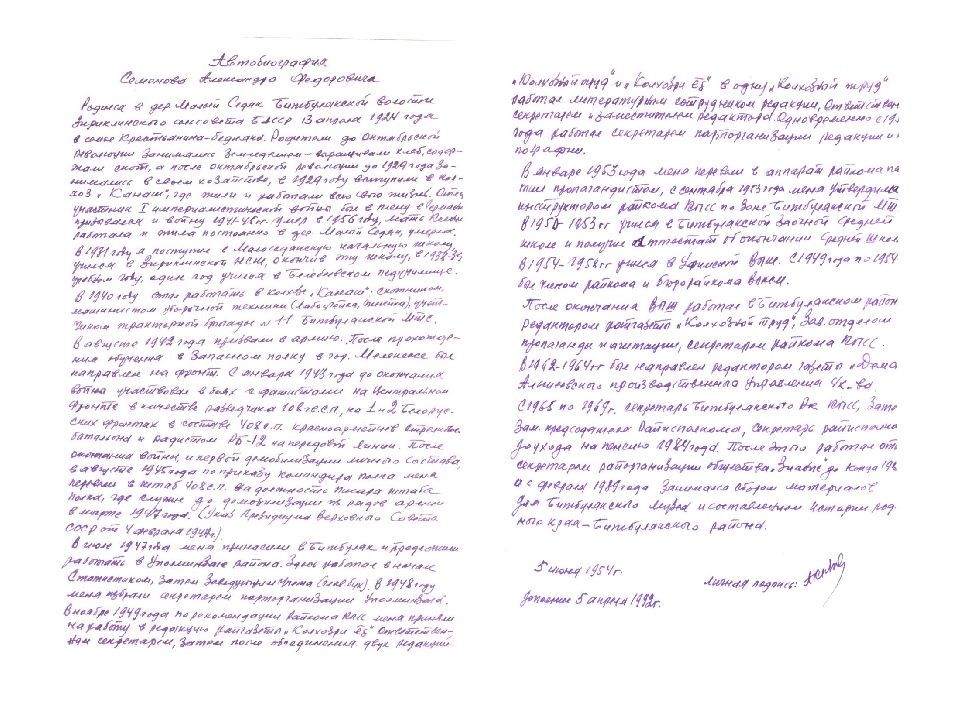 Автобиография
Семенова Александра Федоровича
Родился в дер Малый Седяк Бижбулякской волости
Зириклинского сельсовета БАССР 13 апреля 1924 года
в семье крестьянина-бедняка. Родители до Октябрьской
революции занимались земледелием - выращивали хлеб, содер-
жали скот, а после октябрьской революции до 1929 года за-
нимались в своем хозяйстве, в 1929 году вступили в кол-
хоз "Канаш", где жили и работали всю свою жизнь. Отец
участник I империалистической войны был в плену в
и войну 1941-45 гг. Умер в 1956 году, мать
работала и жила постоянно в дер Малый Седяк, умерла.
В 1931 году я поступил в Малоседякскую начальную школу,
учился в Зириклинской НСШ, окончив эту школу, в
году, один год учился в Белебеевском педучилище.
В 1940 году стал работать в колхозе "Канаш" - скотником,
машинистом уборочной техники (лобогрейка, жнейка), учет-
чиком тракторной бригады № 11 Бижбулякской МТС.
В августе 1942 года призвали в армию. После прохожде-
ния обучения в Запасном полку в гор. Мелекессе был
направлен на фронт. С января 1943 года до окончания
войны участвовал в боях с фашистами на Центральном
фронте в качестве разведчика 108 с.п., на 1 и 2 Белорус-
ских фронтах в составе 408 с.п. красноармейцем стрелков.
батальона и радистом РБ-12 на передовой линии. После
окончания войны, и первой демобилизации личного состава,
в августе 1945 года по приказу командира полка меня
перевели в штаб 408 с.п. на должность писаря штаба
полка, где служил до демобилизации из рядов армии
в марте 1947 года. (Указ Президиума Верховного Совета
СССР от 4 февраля 1947г.)
В июле 1947 года меня пригласили в Бижбуляк и предложили
работать в Уполминзаге района. Здесь работал в начале
Статистиком, затем Заведующим Учета (главбух). В 1948 году
меня избрали секретарем парторганизации Уполминзага.
В ноябре 1949 года по рекомендации райкома КПСС меня приняли
на работу в редакцию райгазеты "Колхозри ĕç" ответствен-
ным секретарем, затем после объединения двух редакций
"Колхозный труд" и "Колхозри ĕç" в одну "Колхозный труд"
работал литературным сотрудником редакции, Ответствен
секретарем и заместителем редактора. Одновременно с
года работал секретарем парторганизации редакции и
пографии.
В январе 1953 года меня перевели в аппарат райкома па
тии пропагандистом, с сентября 1953 года меня утвердили
инструктором райкома КПСС по Зоне Бижбулякской МТ
В 1950-1953 гг учился в Бижбулякской Заочной средней
школе и получил аттестат об окончании Средней школ
В 1954-1958 гг учился в Уфимской ВПШ. С 1949 года по 1954
был членом райкома и бюро райкома ВЛКСМ.
После окончания ВПШ работал в Бижбулякском район
редактором райгазеты "Колхозный труд", Зав. отделом
пропаганды и агитации, секретарем райкома КПСС.
В 1962-1964 гг был направлен редактором газеты
Альшеевского производственного Управления с/х-ва.
С 1965 по 1969 г. секретарь Бижбулякского Рк КПСС, Зате
Зам. председателя Райисполкома, секретарь райисполко
до ухода на пенсию 1984 года. После этого работал отв
секретарем райорганизации общества "Знание" до конца 198
а с февраля 1989 года Занимался сбором материалов
для Бижбулякского музея и составлением истории род-
ного края - Бижбулякского района.
5 июня 1954г.
Личная подпись:
Дополнено 5 апреля 1992г.